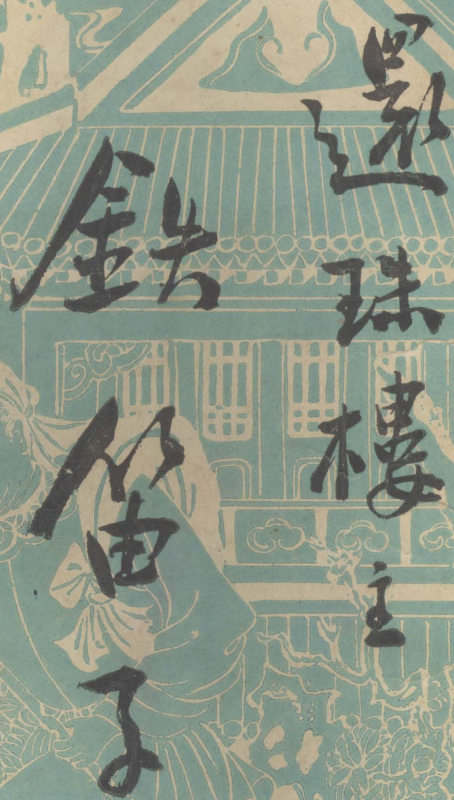 還珠樓主
鉄笛子